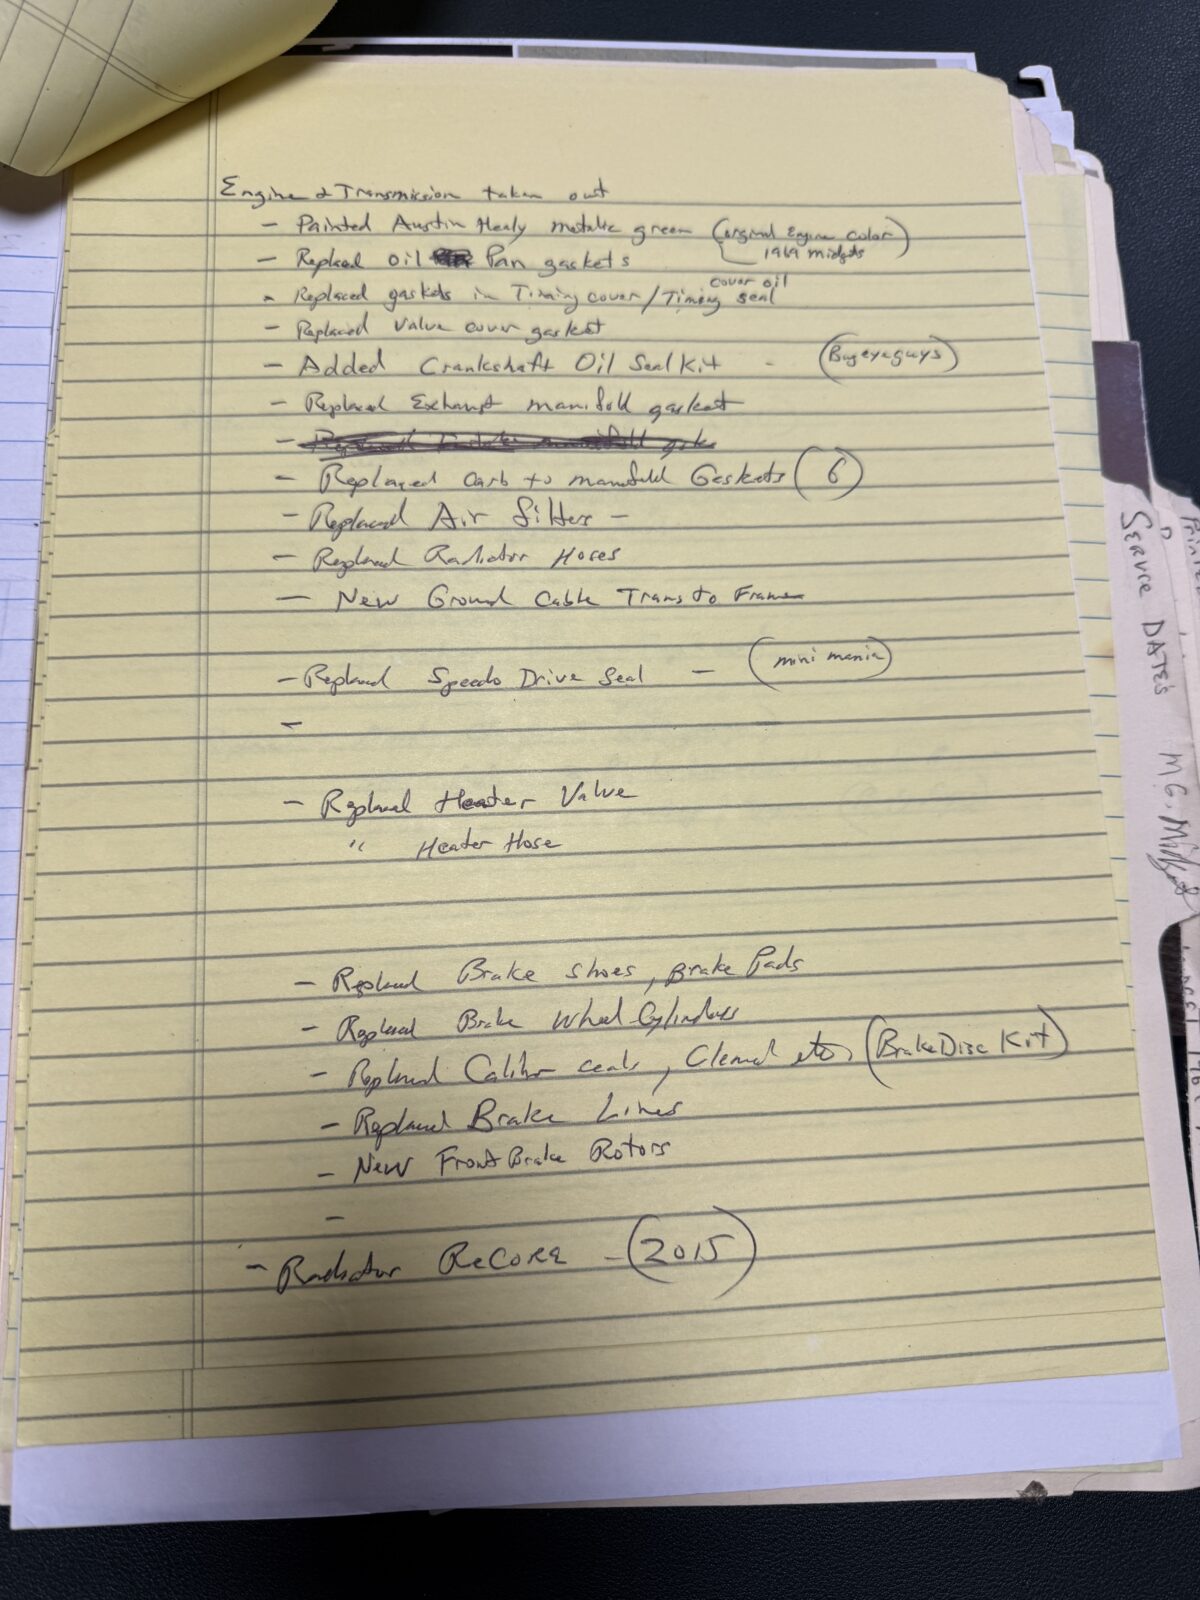 Engine & Transmission taken out
- Painted Austin Healy metalic green (orginal Engine color)
1969 midgets
- Replaced oil Pan gaskets
cover oil
- Replaced gaskets in Timing cover/Timing seal
- Replaced Valve cover gasket
- Added Crankshaft Oil Seal Kit - (Bugeyeguys)
- Replaced Exhaust manifold gasket
- Replaced Carb to manifold Geskets (6)
- Replaced Air filters -
- Replaced Radiator Hoses
- New Ground Cable Trans to Frame
- Replaced Speedo Drive Seal - (mini mania)
-
- Replaced Heater Valve
" Heater Hose
- Replaced Brake shoes, Brake Pads
- Replaced Brake Wheel Cylinders
- Replaced Caliber seals, Cleaned etc, (Brake Disc Kit)
- Replaced Brake Lines
- New Front Brake Rotors
-
- Radiator ReCORE - (2015)
SERVICE DATE'S M.G. Midget